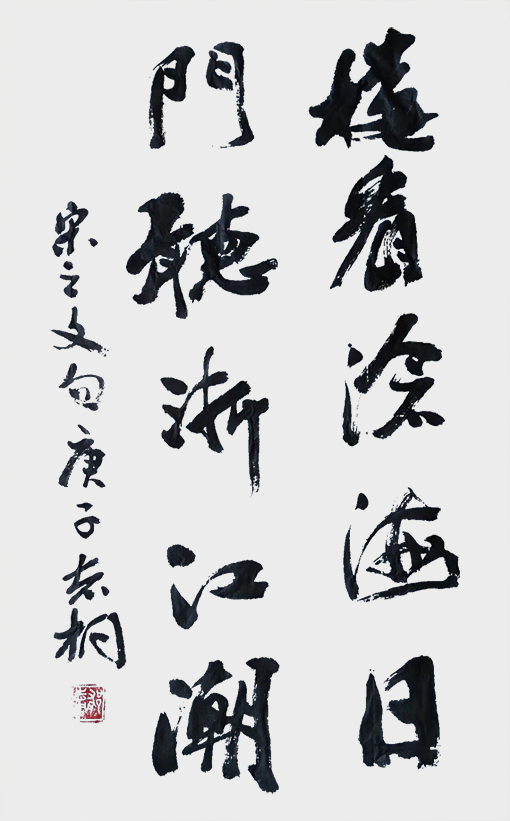 楼看滄海日
門聽浙江潮
宋之文句庚子志桐